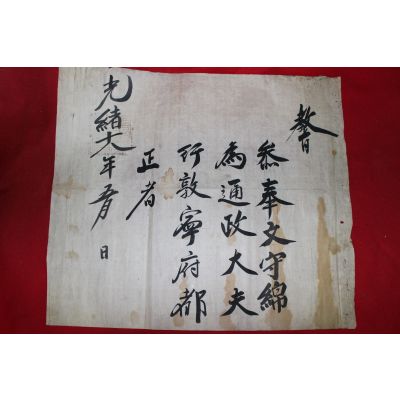 敎旨
叅奉文守綿
爲通政大夫
行敦寧府都
正者
光緖 年 月 日